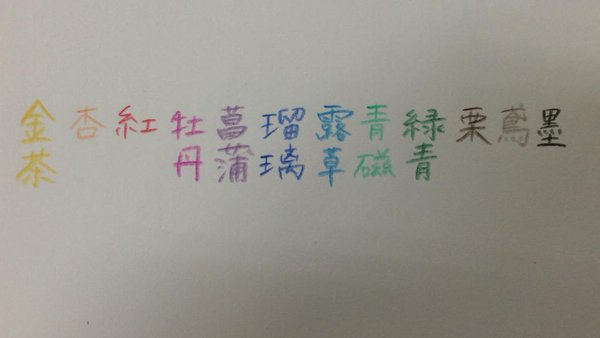 金茶
杏
紅
牡丹
菖蒲
瑠璃
露草
青磁
緑青
栗
鳶
墨